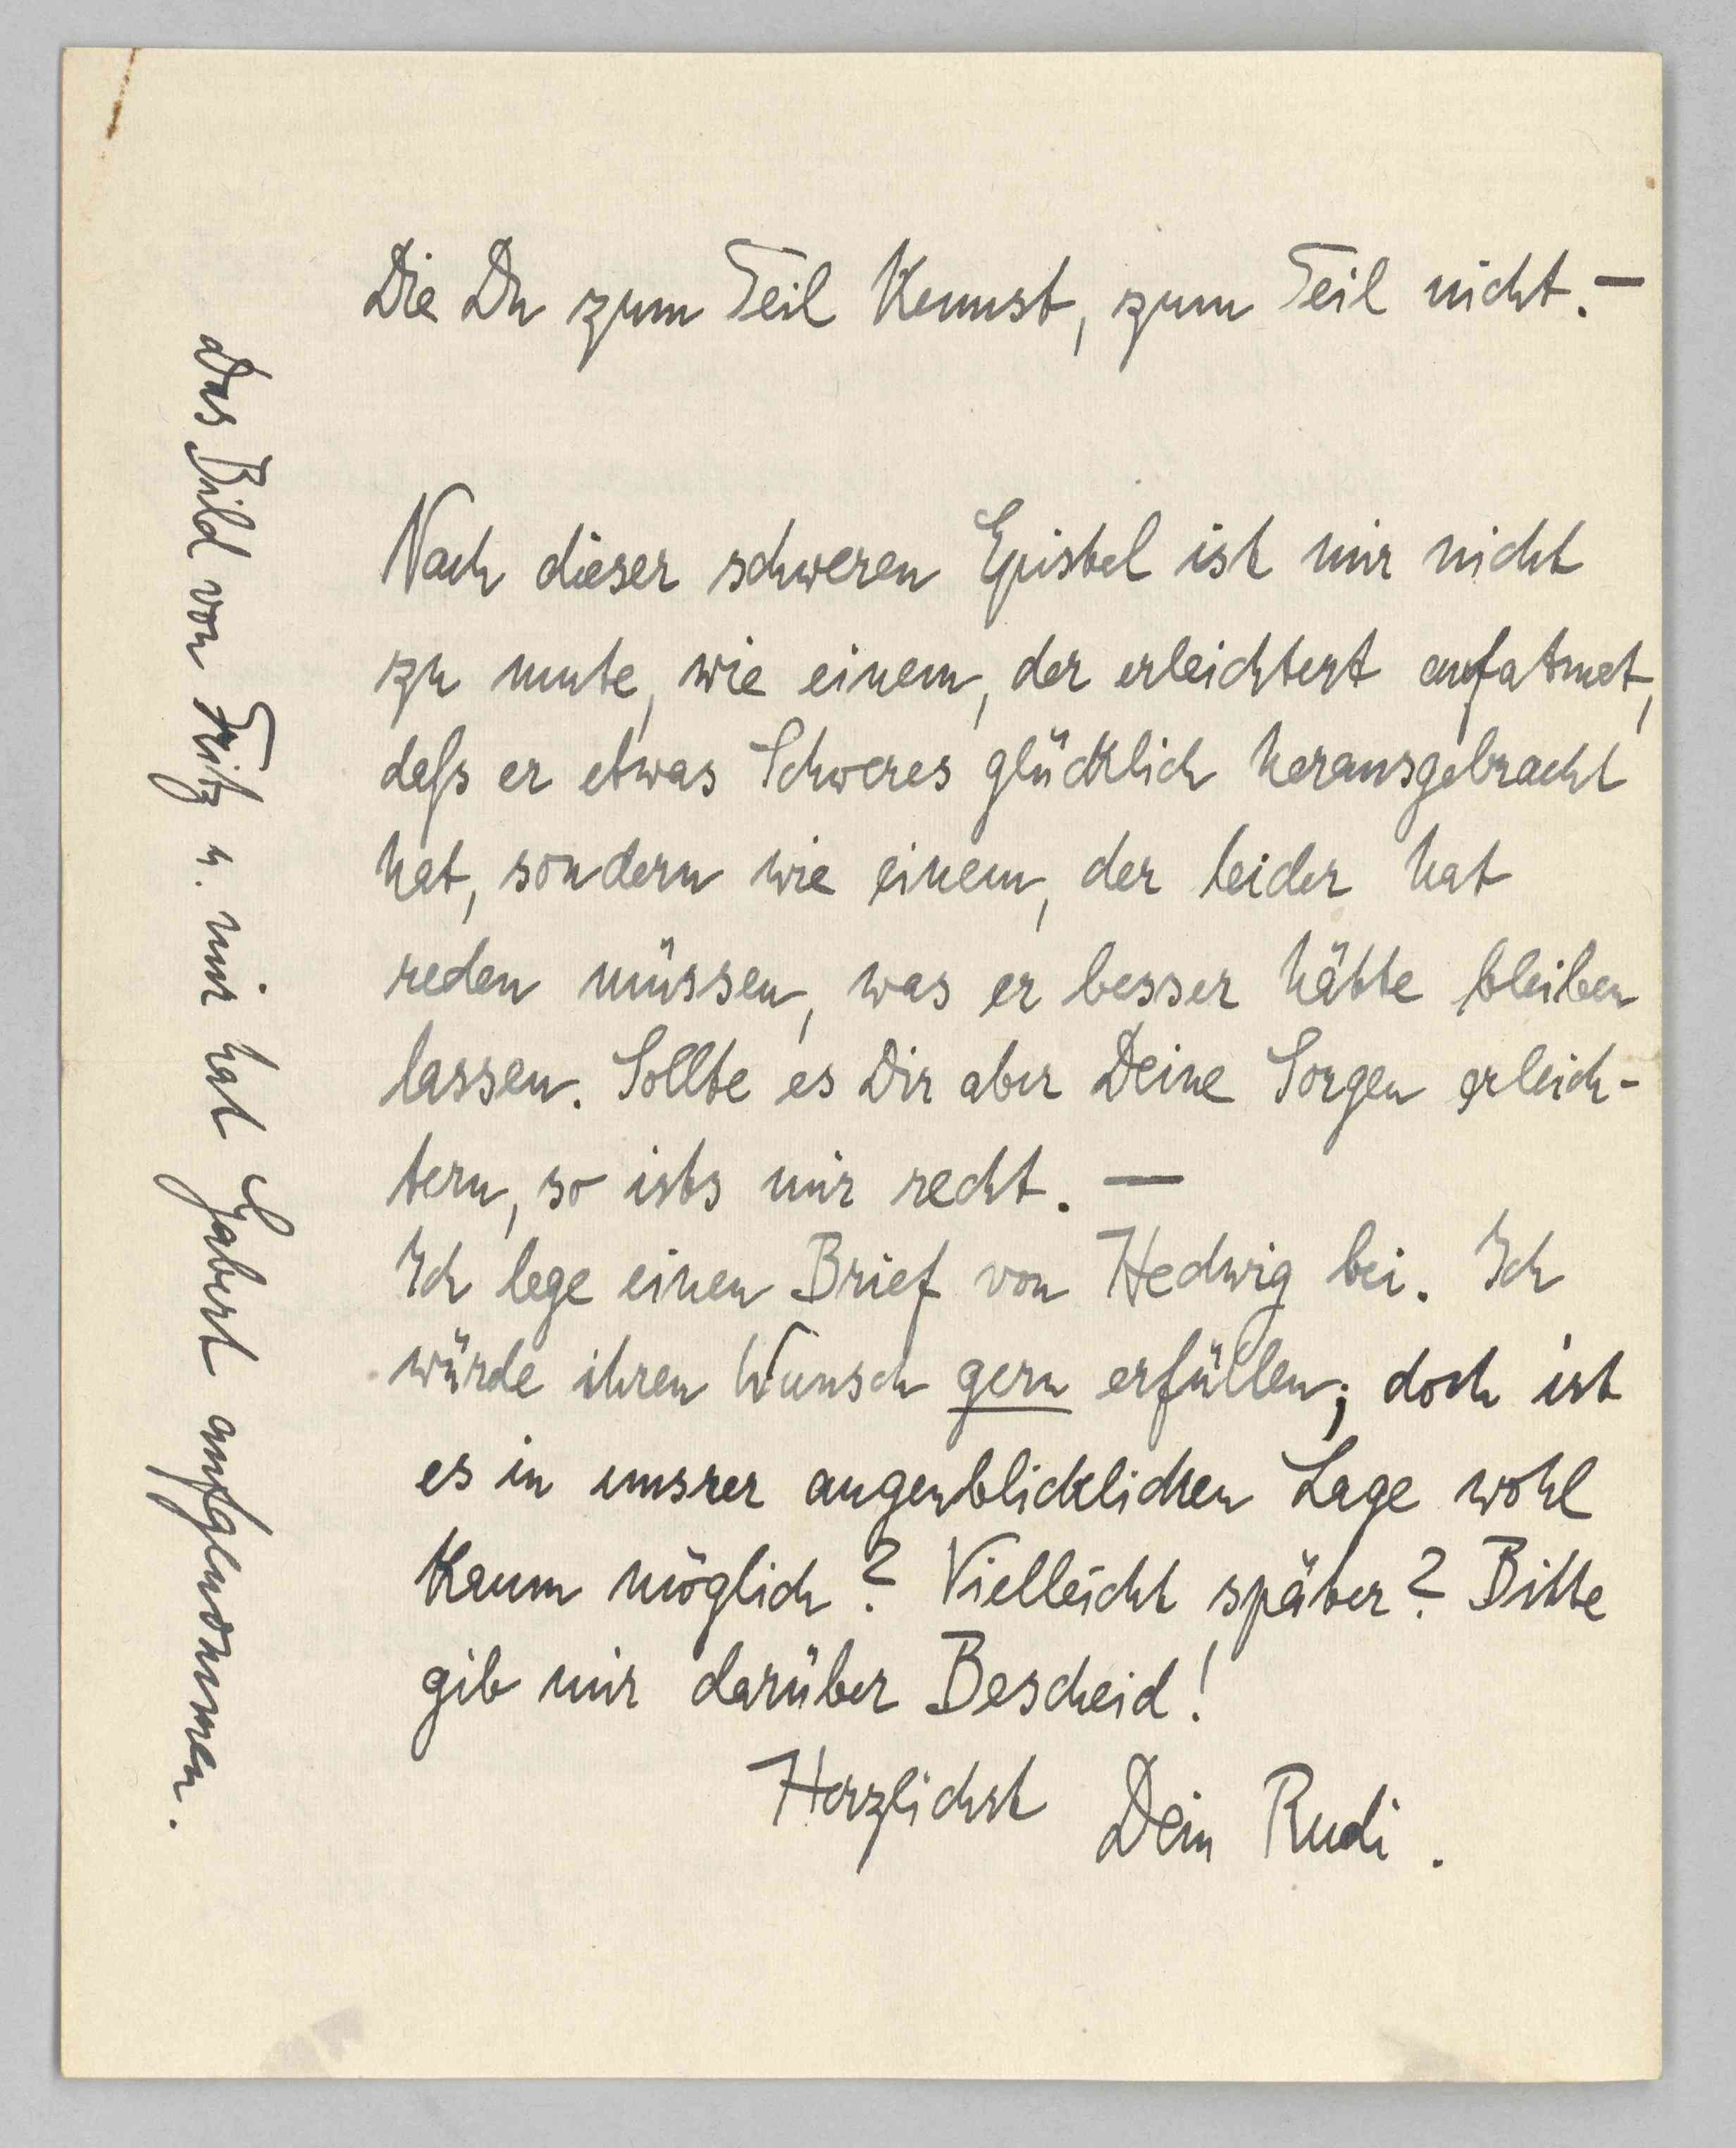 Die Du zum Teil Kennst, zum Teil nicht. —
Nach dieser schweren Epistel ist mir nicht
zu mute, wie einem, der erleichtert aufatmet,
daß er etwas Schweres glücklich herausgebracht
hat, sondern wie einem, der leider hat
reden müssen, was er besser hätte bleiben
lassen. Sollte es Dir aber Deine Sorgen erleich-
tern, so ists mir recht. —
Ich lege einen Brief von Hedwig bei. Ich
würde ihren Wunsch gern erfüllen; doch ist
es in unsrer augenblicklichen Lage wohl
Kaum möglich? Vielleicht später? Bitte
gib mir darüber Bescheid!
Herzlichst Dein Rudi.
Das Bild von Fritz u. mir hat Gabert aufgenommen.